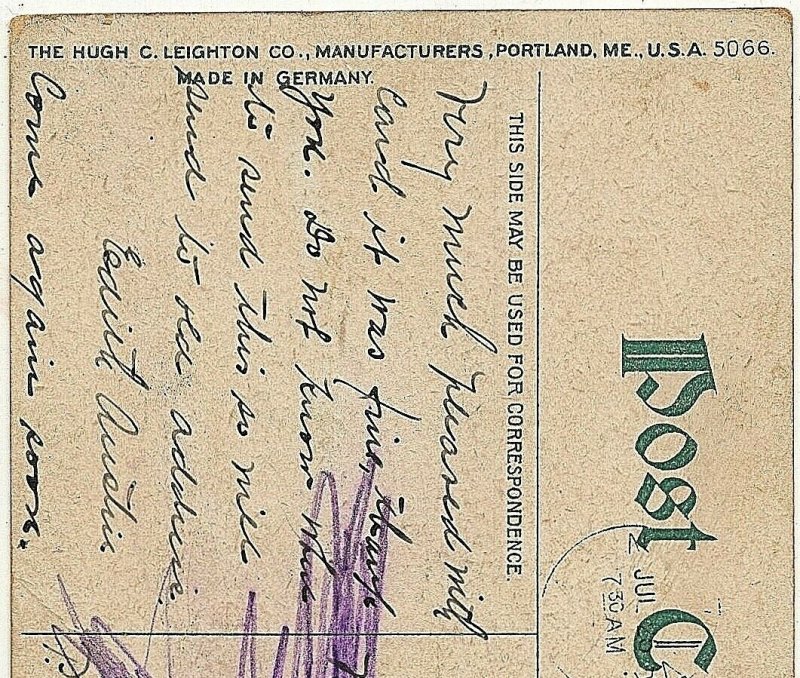 THE HUGH C. LEIGHTON CO., MANUFACTURERS, PORTLAND, ME., U.S.A. 5066.
MADE IN GERMANY.
Post C
THIS SIDE MAY BE USED FOR CORRESPONDENCE.
JUL
730AM
Very much pleased with
card it was fine, thank
you. Do not know where
to send this so will
send to old address.
Edith Austin
Come again soon.